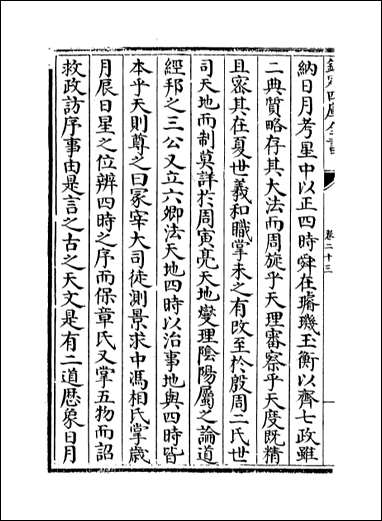 欽定四庫全書
卷二十三
納日月考星中以正四時舜在璿璣玉衡以齊七政雖
二典質略存其大法而周旋乎天理審察乎天度既精
且密其在夏世羲和職掌未之有改至於殷周二氏世
司天地而制莫詳於周寅亮天地燮理陰陽屬之論道
經邦之三公又立六卿法天地四時以治事地與四時皆
本乎天則尊之曰冢宰大司徒測景求中馮相氏掌歲
月辰日星之位辨四時之序而保章氏又掌五物而詔
救政訪序事由是言之古之天文是有二道歴象日月